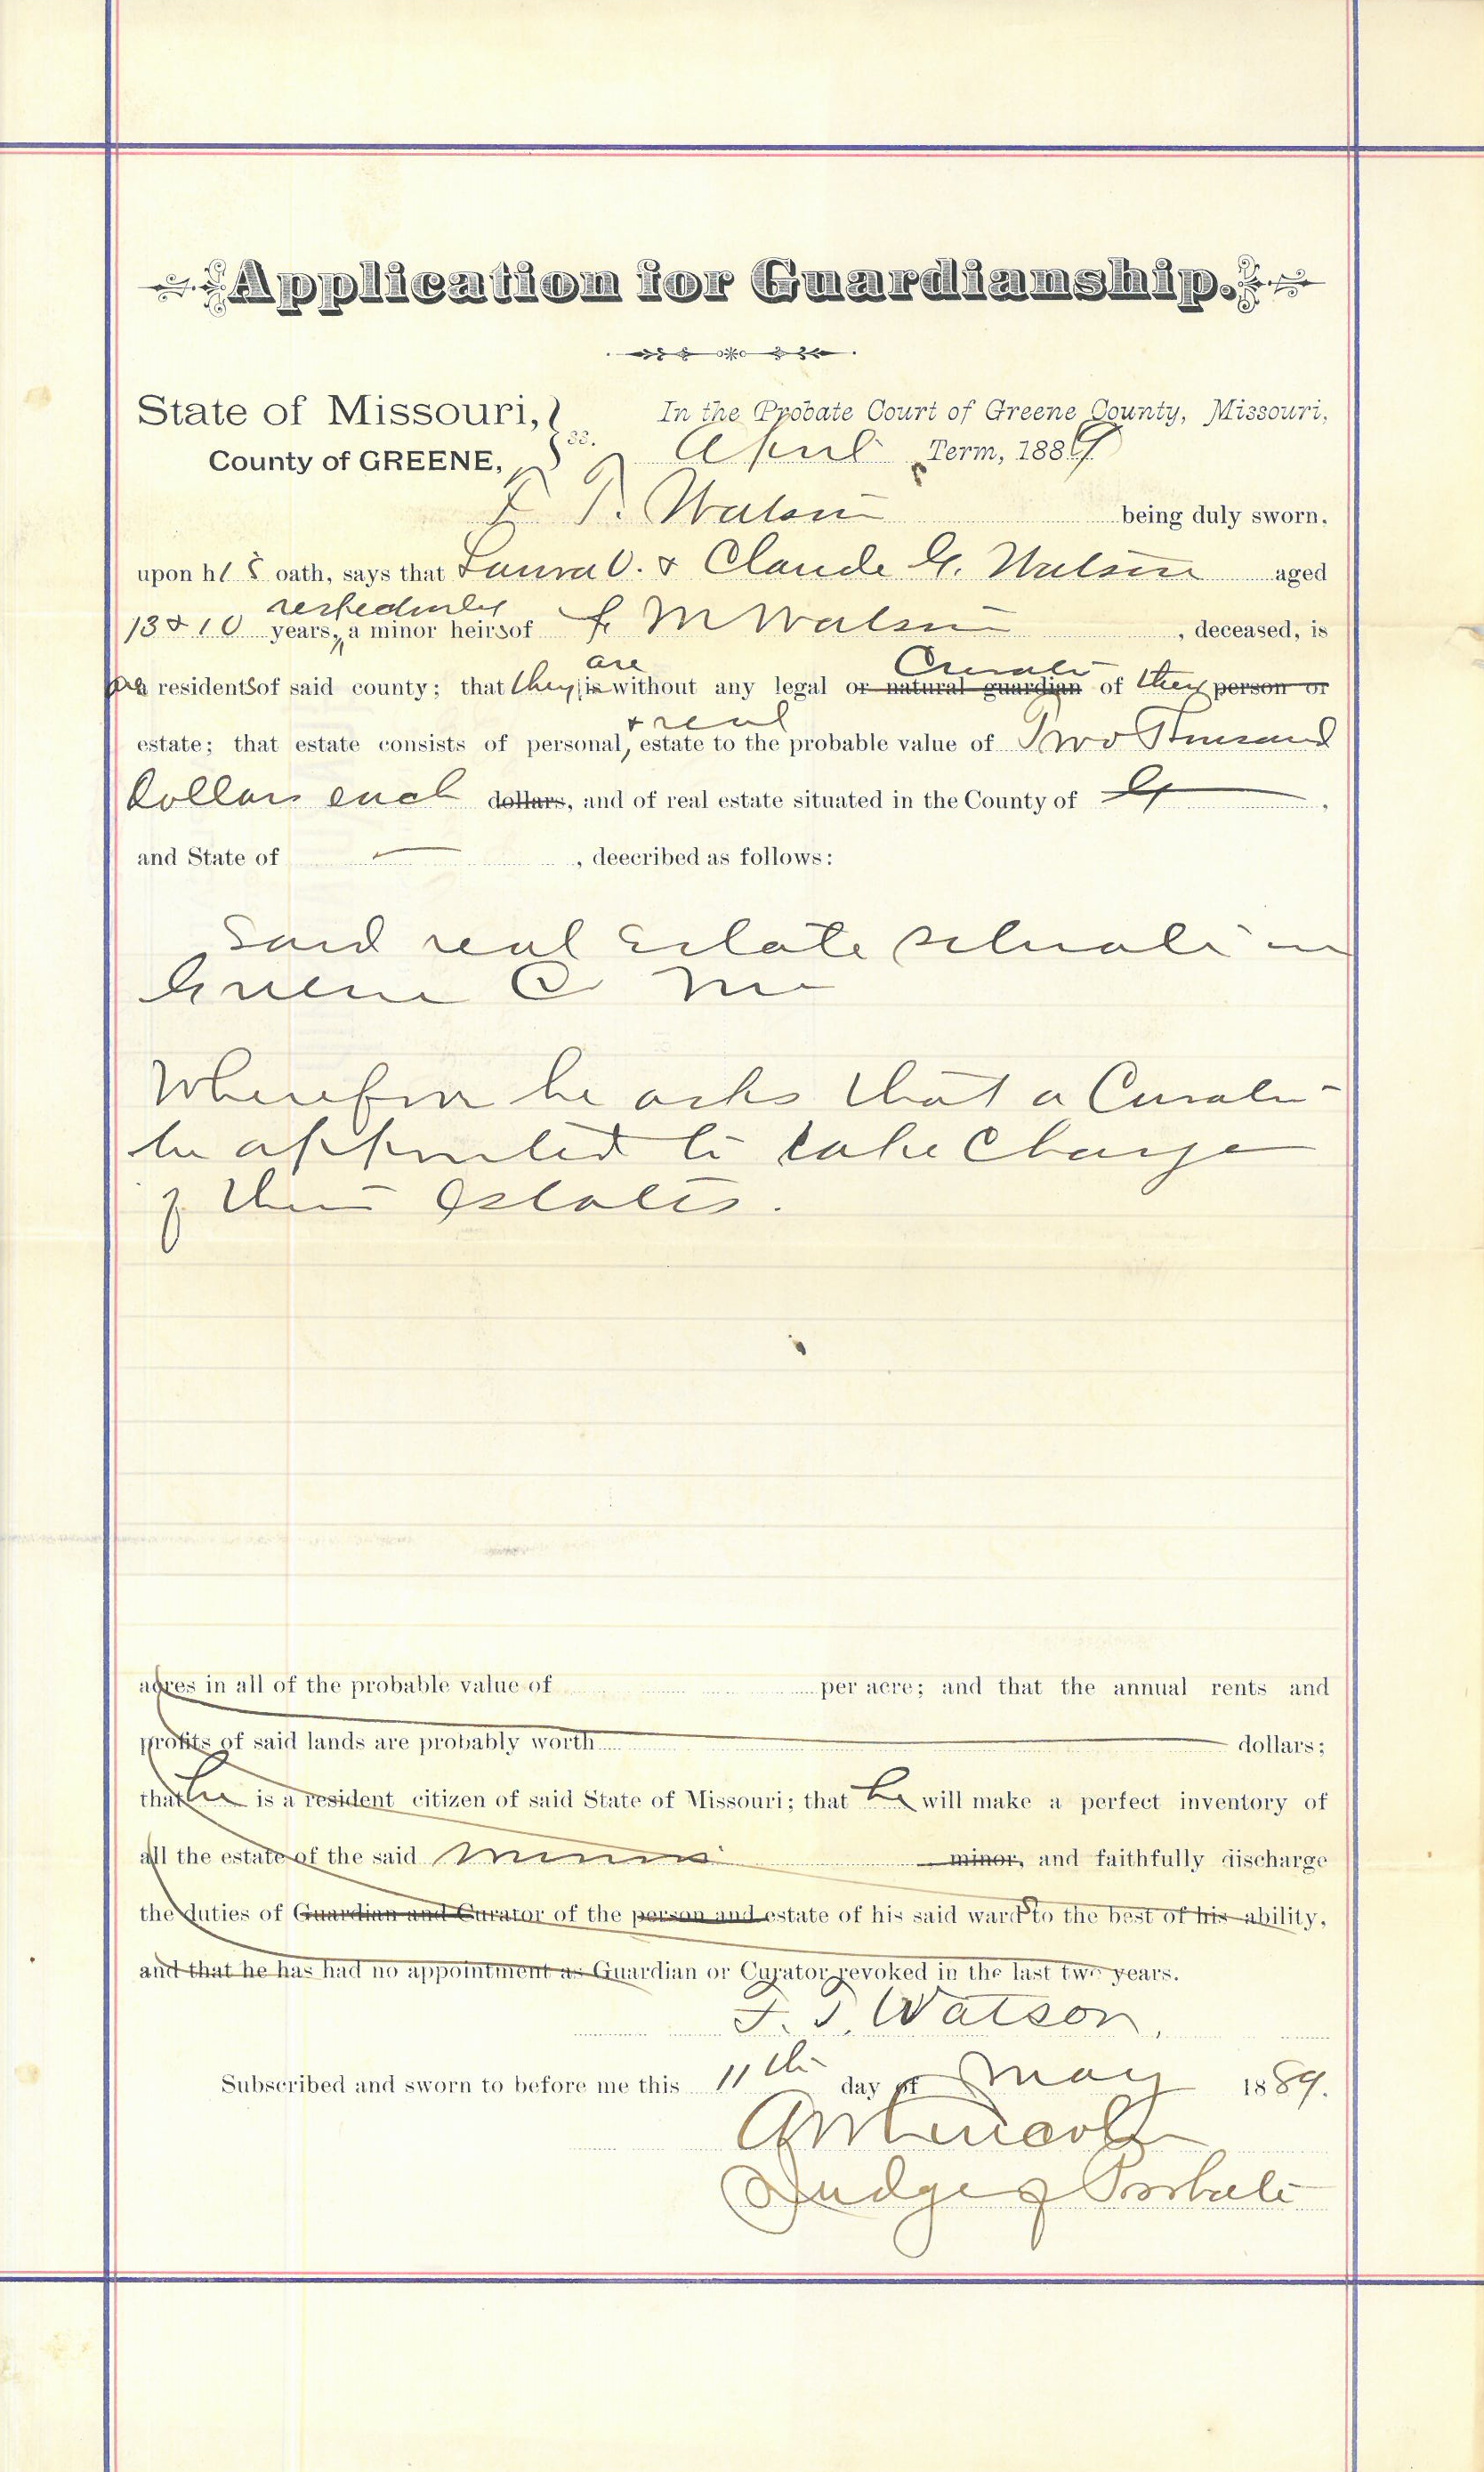 Application for Guardianship.
State of Missouri, } ss. In the Probate Court of Greene County, Missouri,
County of GREENE, April Term, 1889
F. T. Watson being duly sworn,
upon his oath, says that Laura V. & Claude G. Watson aged
respectively
13 & 10 years, a minor heirs of M Watson, deceased, is
are Curator
are residents of said county; that they is without any legal or natural guardian of their person or
& real
estate; that estate consists of personal, estate to the probable value of Two Thousand
Dollars each dollars, and of real estate situated in the County of
and State of — , deecribed as follows:
Said real Estate situate in
Greene Co Mo
Wherefore he asks that a Curator
be appointed to take charge
of their Estates.
acres in all of the probable value of per acre; and that the annual rents and
profits of said lands are probably worth dollars;
that he is a resident citizen of said State of Missouri; that he will make a perfect inventory of
all the estate of the said minors minor, and faithfully discharge
the duties of Guardian and Curator of the person and estate of his said wards to the best of his ability,
and that he has had no appointment as Guardian or Curator revoked in the last two years.
F. T. Watson,
Subscribed and sworn to before me this 11th day of May 1889.
Lincoln
Judge of Probate